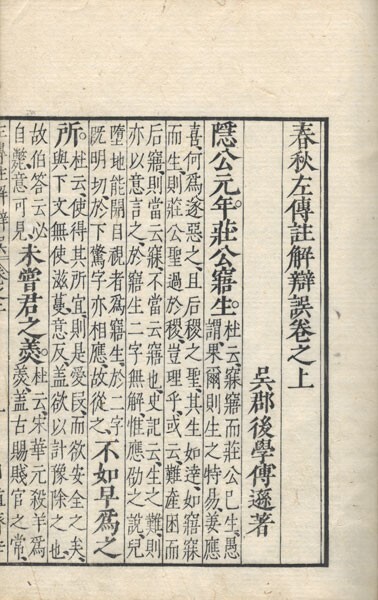 春秋左傳註解辯誤卷之上
吳郡後學傅遜著
隱公元年莊公寤生
杜云寐寤而莊公已生愚
謂果爾則生之特易姜應
喜何爲遂惡之且后稷之聖其生如達如寤寐
而生則莊公聖過於稷豈理乎或云難產困而
后寤則當云寐不當云寤也史記云生之難則
亦以意言之於寤生二字無解惟應劭之說兒
墮地能開目視者爲寤生於二字
旣明切於下驚字亦相應故從之
不如早爲之
所
杜云使得其所宜則是愛民而欲安全之矣
與下文無使滋蔓意反蓋欲以計豫除之也
故伯答云必
自斃意可見
未嘗君之羹
杜云宋華元殺羊爲
羹蓋古賜賤官之常